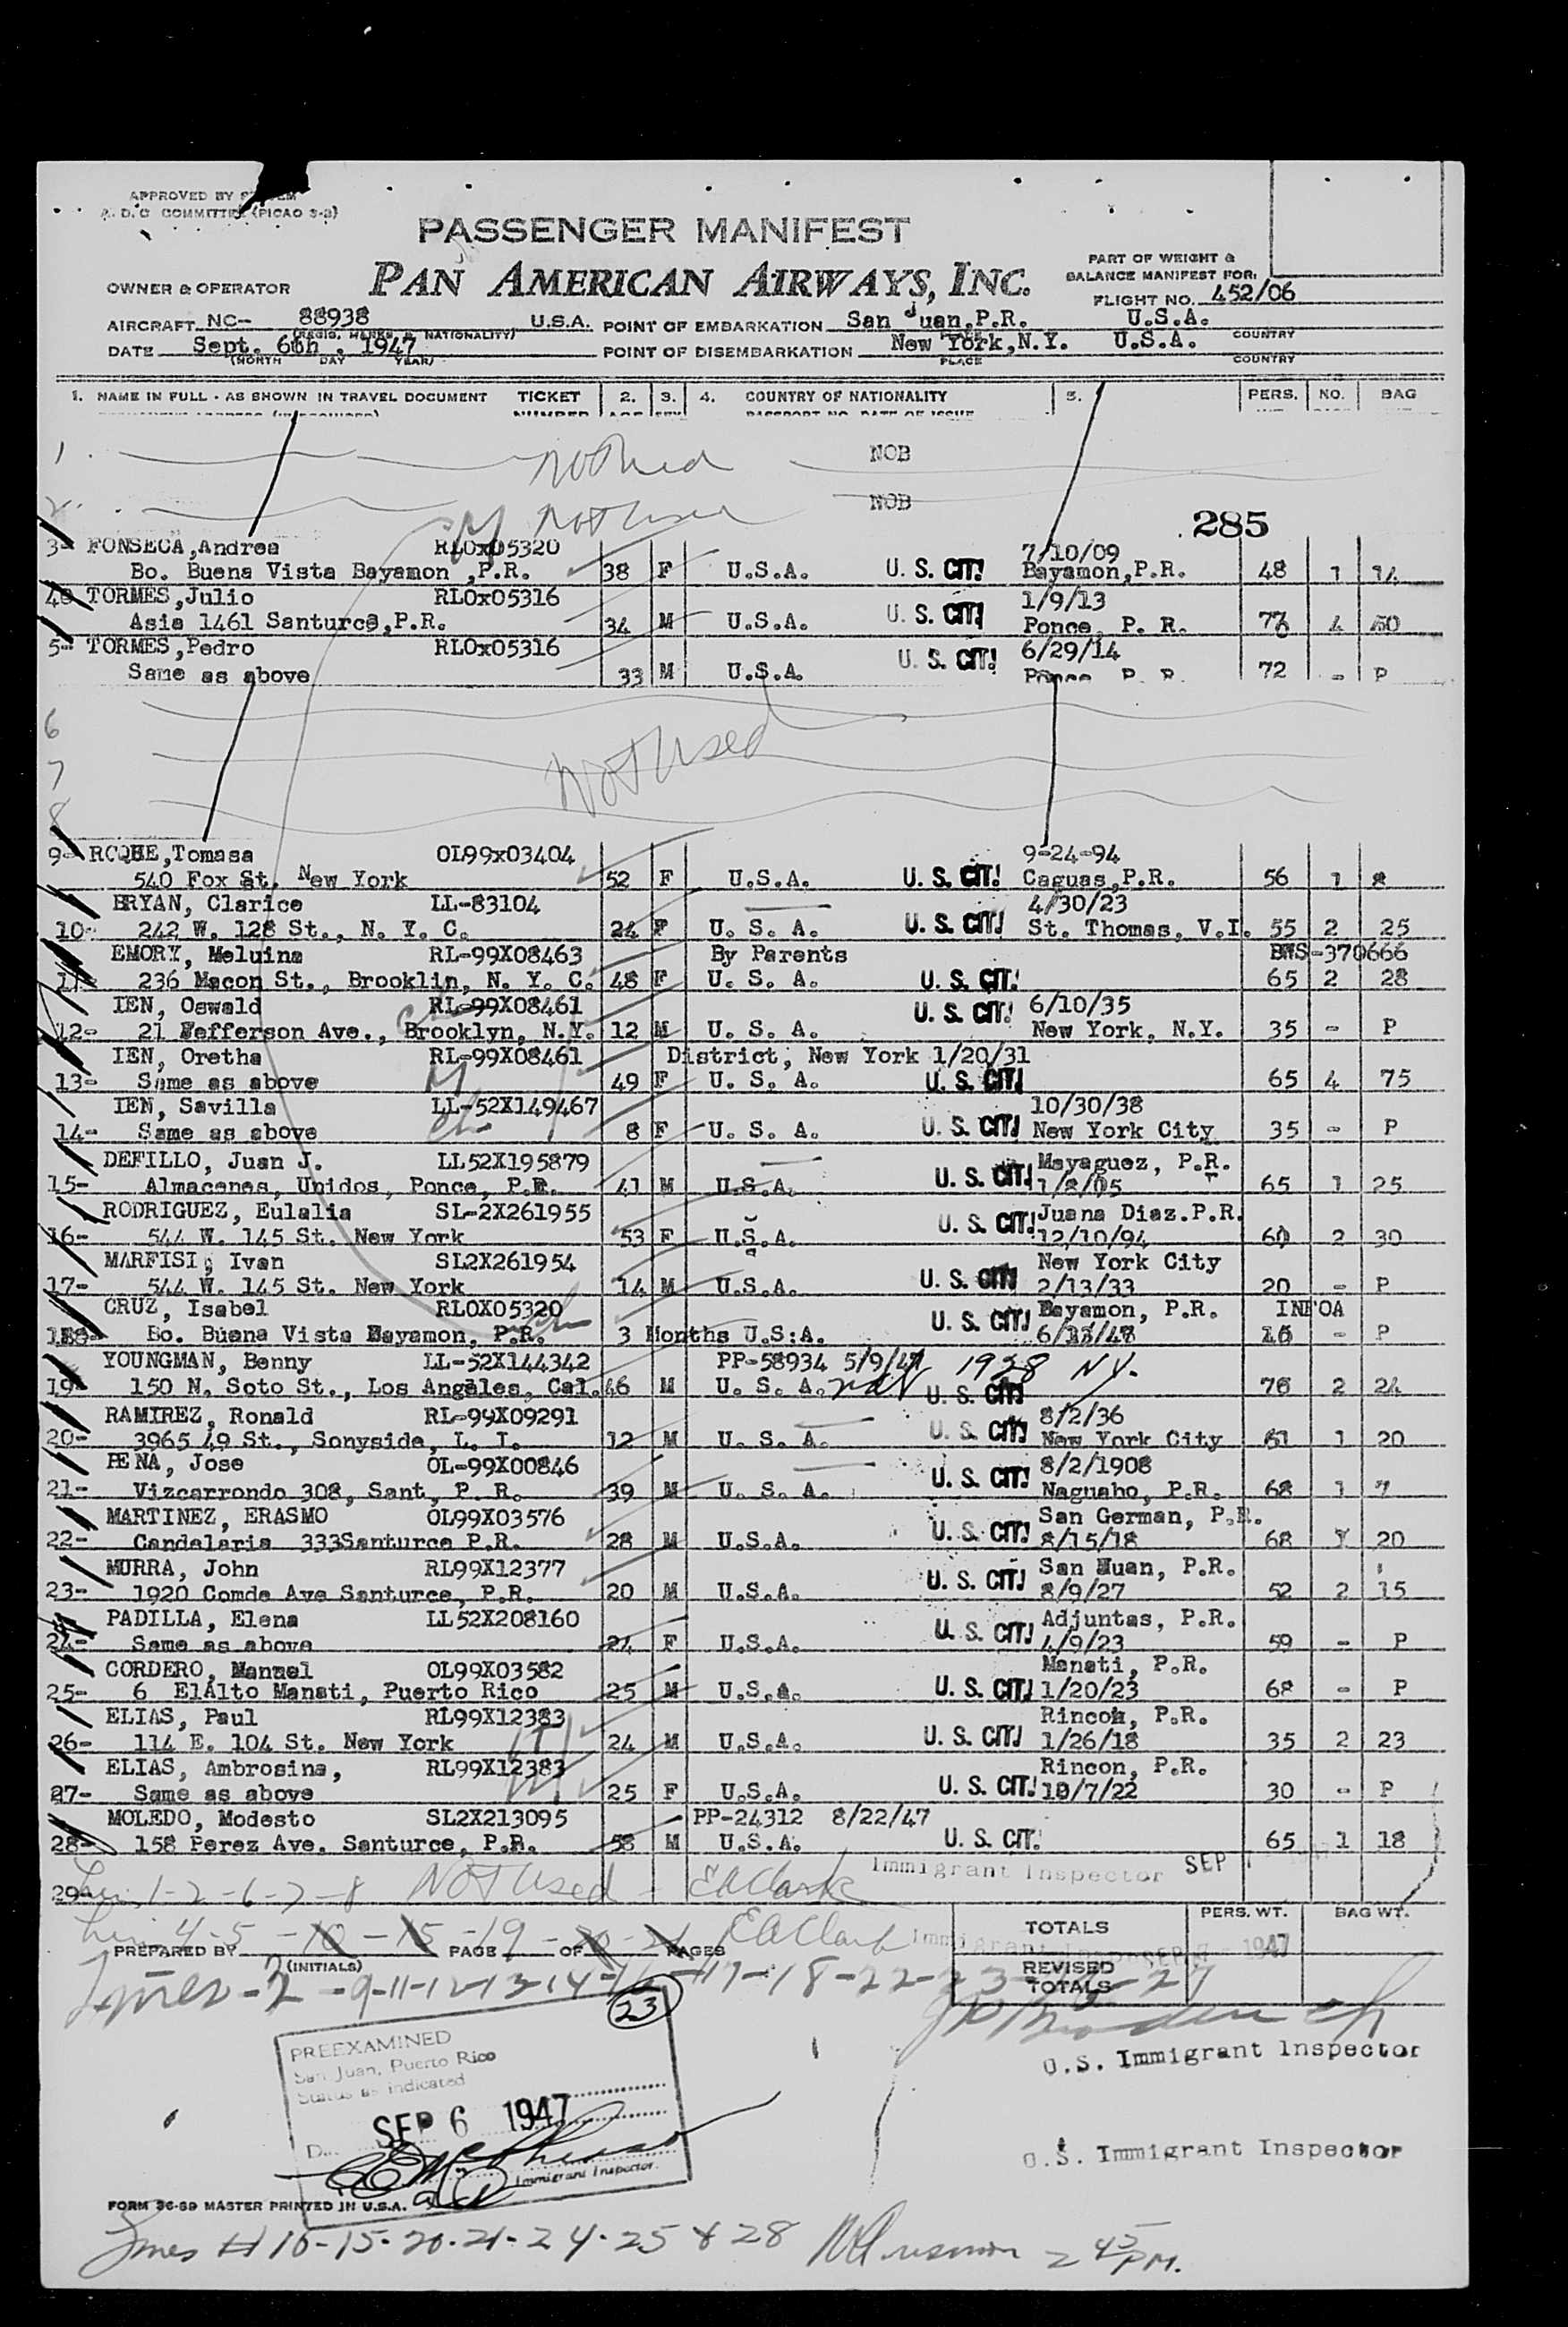 APPROVED BY
A. D. C COMMITTEE (PICAO 3-3)
PASSENGER MANIFEST
PAN AMERICAN AIRWAYS, INC.
PART OF WEIGHT &
BALANCE MANIFEST FOR:
OWNER & OPERATOR
FLIGHT NO. 452/06
AIRCRAFT NC- 88938 U.S.A. POINT OF EMBARKATION San Juan,P.R. U.S.A.
(REGIS. MARKS & NATIONALITY) PLACE COUNTRY
DATE Sept. 6th . 1947 POINT OF DISEMBARKATION New York,N.Y. U.S.A.
(MONTH DAY YEAR) PLACE COUNTRY
1. NAME IN FULL - AS SHOWN IN TRAVEL DOCUMENT TICKET 2. 3. 4. COUNTRY OF NATIONALITY 5. PERS. NO. BAG
NUMBER AGE SEX PASSPORT NO. DATE OF ISSUE
1. Not Used NOB
2. Not Used NOB
285
3- FONSECA,Andrea RL0x05320 7/10/09
Bo. Buena Vista Bayamon ,P.R. 38 F U.S.A. U. S. CIT. Bayamon,P.R. 48 1 14
4- TORMES,Julio RL0x05316 1/9/13
Asia 1461 Santurce,P.R. 34 M U.S.A. U. S. CIT. Ponce, P. R. 4
5- TORMES,Pedro RL0x05316 6/29/14
Same as above 33 M U.S.A. U. S. CIT. Ponce P. R. 72 - P
6
7 Not Used
8
9- ROQUE,Tomasa OL99x03404 9-24-94
540 Fox St. New York 52 F U.S.A. U. S. CIT. Caguas,P.R. 56 1 8
BRYAN, Clarice LL-83104 4/30/23
10- 242 W. 128 St., N. Y. C. 24 F U. S. A. U. S. CIT. St. Thomas, V.I. 55 2 25
EMORY, Meluina RL-99X08463 By Parents BWS-370666
11- 236 Macon St., Brooklin, N. Y. C. 48 F U. S. A. U. S. CIT. 65 2 28
IEN, Oswald RL-99X08461 6/10/35
12- 21 Jefferson Ave., Brooklyn, N.Y. 12 M U. S. A. U. S. CIT. New York, N.Y. 35 - P
IEN, Oretha RL-99X08461 District, New York 1/20/31
13- Same as above 49 F U. S. A. U. S. CIT. 65 4 75
IEN, Savilla LL-52X149467 10/30/38
14- Same as above 8 F U. S. A. U. S. CIT. New York City 35 - P
DEFILLO, Juan J. LL52X195879 Mayaguez, P.R.
15- Almacenes, Unidos, Ponce, P.R. 41 M U.S.A. U. S. CIT. 1/8/05 65 1 25
RODRIGUEZ, Eulalia SL-2X261955 Juana Diaz.P.R.
16- 544 W. 145 St. New York 53 F U.S.A. U. S. CIT. 12/10/94 60 2 30
MARFISI, Ivan SL2X261954 New York City
17- 544 W. 145 St. New York 14 M U.S.A. U. S. CIT. 2/13/33 20 - P
CRUZ, Isabel RL0X05320 Bayamon, P.R. INFOA
18- Bo. Buena Vista Bayamon, P.R. 3 Months U.S.A. U. S. CIT. - P
YOUNGMAN, Benny LL-52X144342 PP-58934 5/9/47 1928 N.Y.
19- 150 N. Soto St., Los Angeles, Cal. 46 M U. S. A. U. S. CIT. 76 2 24
RAMIREZ, Ronald RL-99X09291 8/2/36
20- 3965 49 St., Sonyside, L. I. 12 M U. S. A. U. S. CIT. New York City 1 20
PENA, Jose OL-99X00846 8/2/1908
21- Vizcarrondo 308, Sant, P. R. 39 M U. S. A. U. S. CIT. Naguabo, P.R. 68 1 7
MARTINEZ, ERASMO OL99X03576 San German, P.R.
22- Candelaria 333Santurce P.R. 28 M U.S.A. U. S. CIT. 8/15/18 68 1 20
MURRA, John RL99X12377 San Juan, P.R.
23- 1920 Comde Ave Santurce, P.R. 20 M U.S.A. U. S. CIT. 8/9/27 52 2 15
PADILLA, Elena LL52X208160 Adjuntas, P.R.
24- Same as above 24 F U.S.A. U. S. CIT. 4/9/23 59 - P
CORDERO, Manuel OL99X03582 Manati, P.R.
25- 6 ElAlto Manati, Puerto Rico 25 M U.S.A. U. S. CIT. 1/20/23 68 - P
ELIAS, Paul RL99X12383 Rincon, P.R.
26- 114 E. 104 St. New York 24 M U.S.A. U. S. CIT. 1/26/18 35 2 23
ELIAS, Ambrosina, RL99X12383 Rincon, P.R.
27- Same as above 25 F U.S.A. U. S. CIT. 10/7/22 30 - P
MOLEDO, Modesto SL2X213095 PP-24312 8/22/47
28- 158 Perez Ave. Santurce, P.R. 58 M U.S.A. U. S. CIT. 65 1 18
Immigrant Inspector SEP 7 1947
29- 1-2-6-7-8 Not Used - EA Clark
4-5-10-15-19-20-21 EA Clark Immigrant Inspector SEP 7 - 1947
TOTALS PERS. WT. BAG WT.
PREPARED BY PAGE OF PAGES
(INITIALS)
REVISED
TOTALS
Lines-3-9-11-12-13-14-16-17-18-22-23-26-27
23
U.S. Immigrant Inspector
PREEXAMINED
San Juan, Puerto Rico
Status as indicated
SEP 6 1947
Immigrant Inspector.
U.S. Immigrant Inspector
FORM 36-69 MASTER PRINTED IN U.S.A.
Lines # 10-15-20-21-24-25 & 28 2 45 PM.